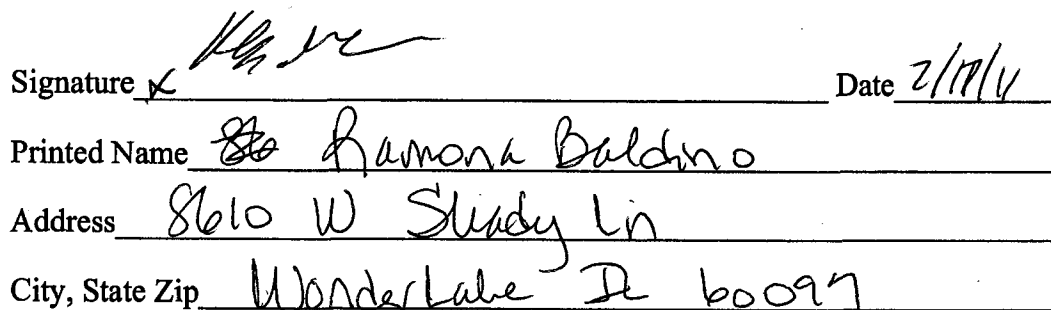 Signature x Date 2/17/11
Printed Name Ramona Baldino
Address 8610 W Shady Ln
City, State Zip Wonder Lake IL 60097